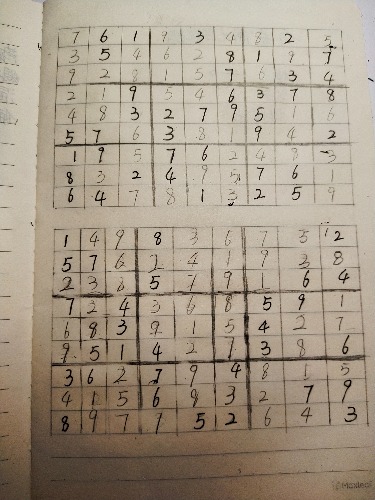 7 6 1 9 3 4 8 2 5
3 5 4 6 2 8 1 9 7
9 2 8 1 5 7 6 3 4
2 1 9 5 4 6 3 7 8
4 8 3 2 7 9 5 1 6
5 7 6 3 8 1 9 4 2
1 9 5 7 6 2 4 8 3
8 3 2 4 9 5 7 6 1
6 4 7 8 1 3 2 5 9
1 4 9 8 3 6 7 5 2
5 7 6 2 4 1 9 3 8
2 3 8 5 7 9 1 6 4
7 2 4 3 6 8 5 9 1
6 8 3 9 1 5 4 2 7
9 5 1 4 2 7 3 8 6
3 6 2 7 9 4 8 1 5
4 1 5 6 8 3 2 7 9
8 9 7 7 5 2 6 4 3